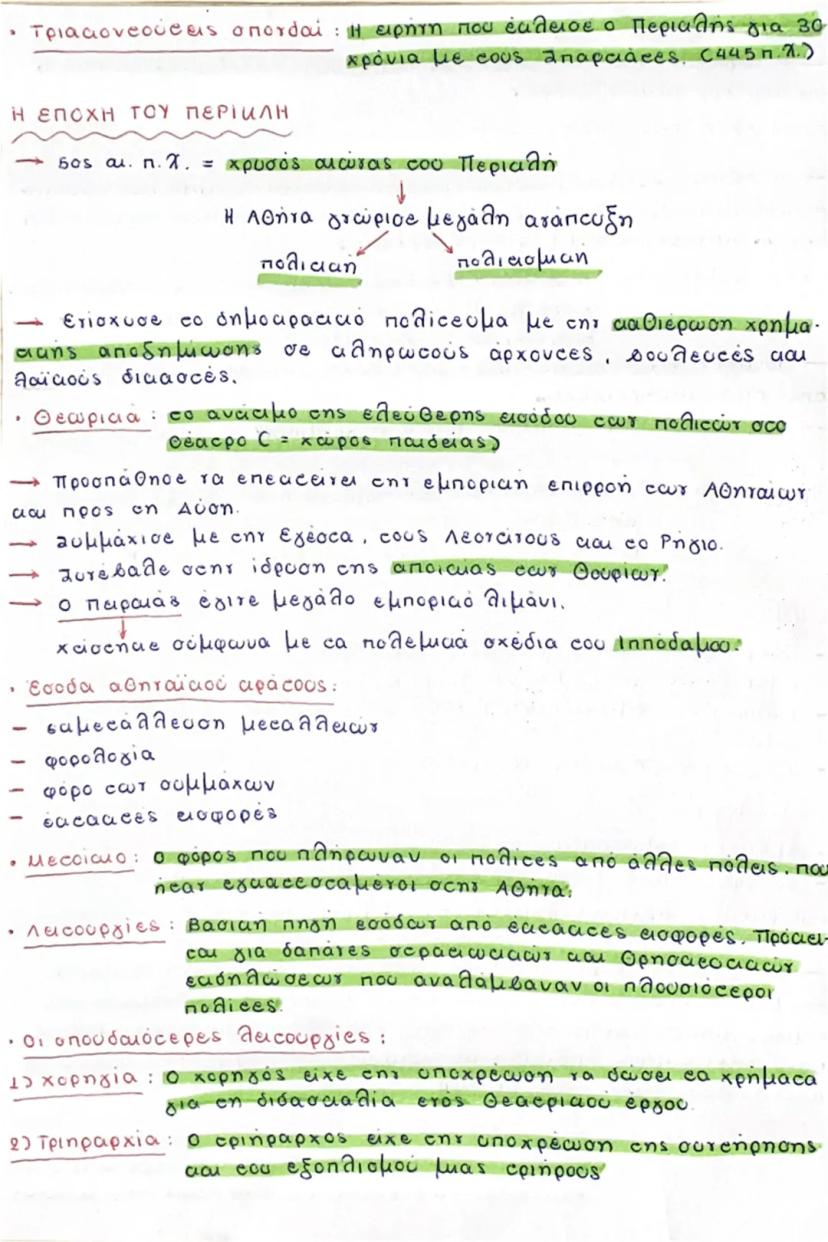 · Τριακονούτεις σπονδαί : Η ειρήνη που έκλεισε ο Περικλής για 30
χρόνια με τους Σπαρτιάτες. (445 π.Χ.)
Η ΕΠΟΧΗ ΤΟΥ ΠΕΡΙΚΛΗ
→ 5ος αι. π.Χ. = χρυσός αιώνας του Περικλή
Η Αθήνα γνώρισε μεγάλη ανάπτυξη
πολιτική πολιτισμική
→ Ενίσχυσε το δημοκρατικό πολίτευμα με την καθιέρωση χρημα-
τικής αποζημίωσης σε κληρωτούς άρχοντες, βουλευτές και
λαϊκούς δικαστές.
· Θεωρικά : το αντίτιμο της ελεύθερης εισόδου των πολιτών στο
θέατρο (= χώρος παιδείας)
→ Προσπάθησε να επεκτείνει την εμπορική επιρροή των Αθηναίων
και προς τη Δύση.
→ Συμμάχισε με την Εγέστα, τους Λεοντίνους και το Ρήγιο.
→ Συνέβαλε στην ίδρυση της αποικίας των Θουρίων.
→ Ο Πειραιάς έγινε μεγάλο εμπορικό λιμάνι.
χτίστηκε σύμφωνα με τα πολεμικά σχέδια του Ιππόδαμου.
· Έσοδα αθηναϊκού κράτους:
– εκμετάλλευση μεταλλείων
– φορολογία
– φόρο των συμμάχων
– έκτακτες εισφορές
· Μετοίκιο : Ο φόρος που πλήρωναν οι πολίτες από άλλες πόλεις, που
ήταν εγκατεσταμένοι στην Αθήνα.
· Λειτουργίες : Βασική πηγή εσόδων από έκτακτες εισφορές. Πρόκει-
ται για δαπάνες στρατιωτικών και θρησκευτικών
εκδηλώσεων που αναλάμβαναν οι πλουσιότεροι
πολίτες.
· Οι σπουδαιότερες λειτουργίες :
1) Χορηγία : Ο χορηγός είχε την υποχρέωση να δώσει τα χρήματα
για τη διδασκαλία ενός θεατρικού έργου.
2) Τριηραρχία : Ο τριήραρχος είχε την υποχρέωση της συντήρησης
και του εξοπλισμού μιας τριήρους